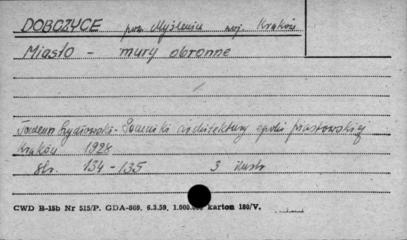 DOBCZYCE pow. Myślenice woj. Kraków
Miasto - mury obronne
Pomniki architektury epoki piastowskiej
Kraków 1928
Str. 134-135 3 ilustr
CWD B-15b Nr 515/P. GDA-869, 6.3.59, 1.000.000 karton 180/V.